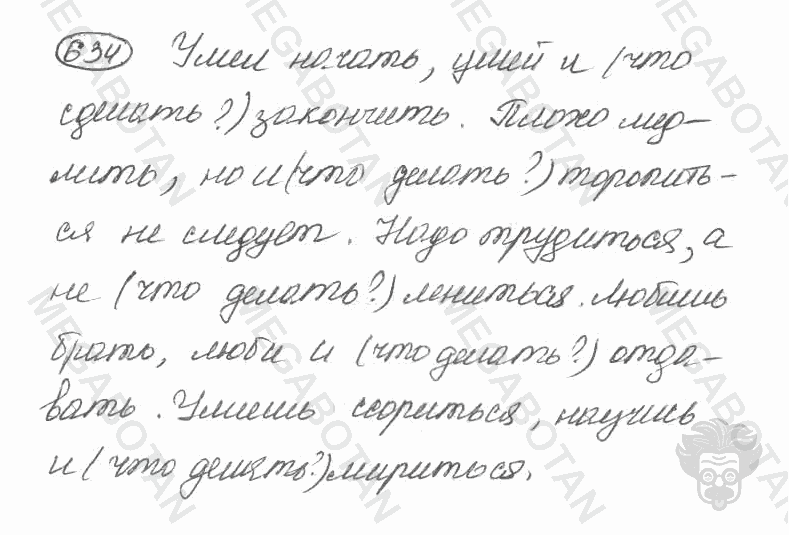 634 Умел начать, умей и (что
сделать?) закончить. Плохо мед-
лить, но и (что делать?) торопить-
ся не следует. Надо трудиться, а
не (что делать?) лениться. Любишь
брать, люби и (что делать?) отда-
вать. Умеешь ссориться, научись
и (что делать?) мириться.
MEGABOTAN